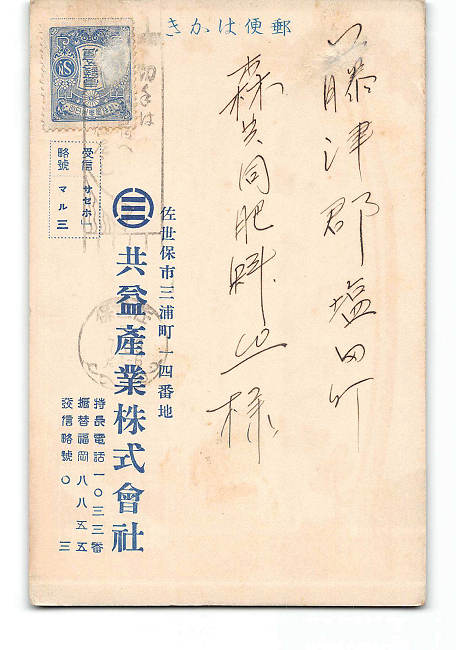 郵便はかき
藤津郡塩田町
森共同肥料
様
切手は
受信 サセホ
略號 マル三
佐世保市三浦町一四番地
共益產業株式會社
特長電話一〇三三番
振替福岡八八五五
發信略號〇三